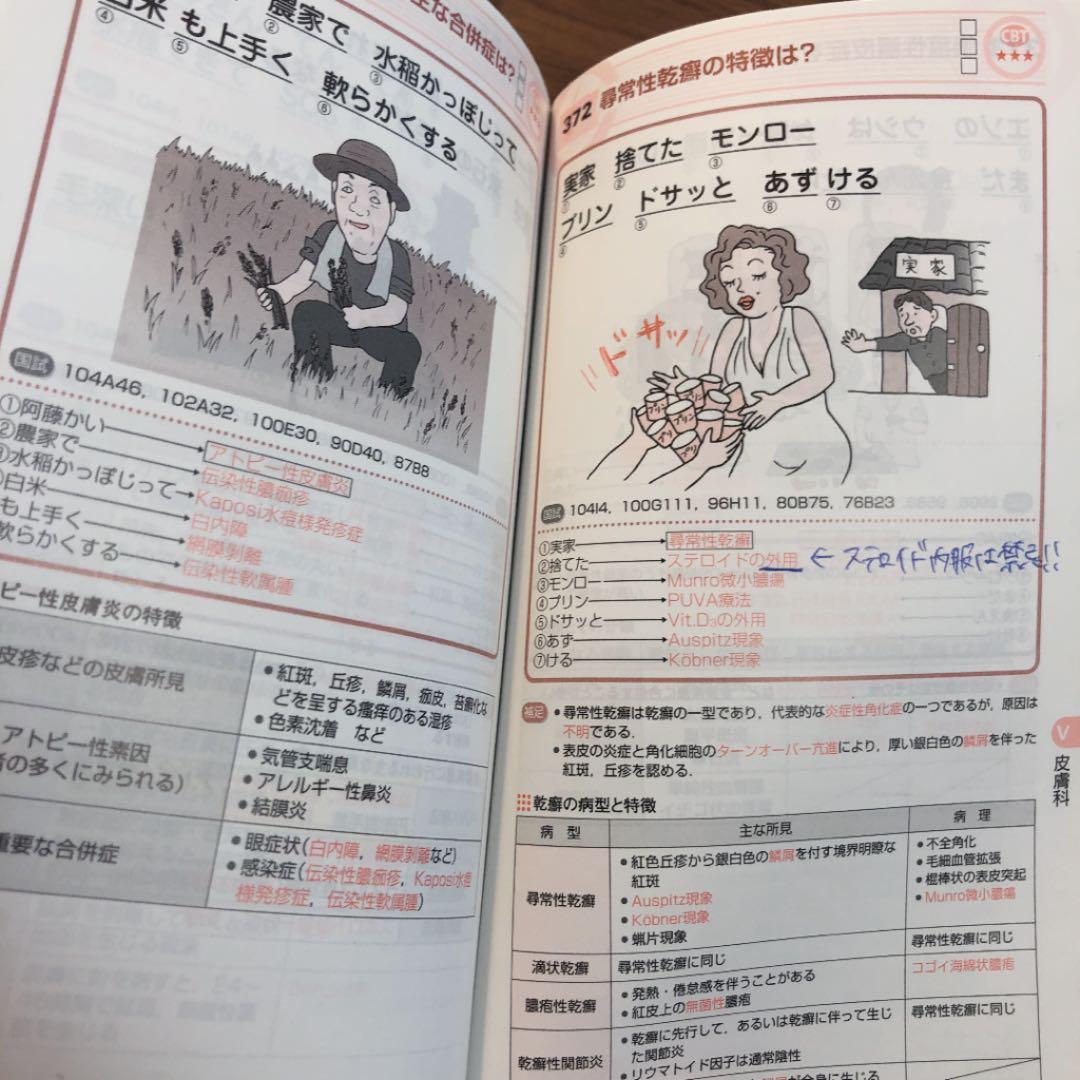 主な合併症は?
農家で 水稲かっぽじって
②
③
白米 も上手く 軟らかくする
④
⑤
⑥
国試 104A46, 102A32, 100E30, 90D40, 87B8
①阿藤かい アトピー性皮膚炎
②農家で 伝染性膿痂疹
③水稲かっぽじって Kaposi水痘様発疹症
白米 白内障
も上手く 網膜剥離
軟らかくする 伝染性軟属腫
ピー性皮膚炎の特徴
皮疹などの皮膚所見
●紅斑,丘疹,鱗屑,痂皮,苔癬化な
どを呈する瘙痒のある湿疹
●色素沈着 など
アトピー性素因
の多くにみられる)
●気管支喘息
●アレルギー性鼻炎
●結膜炎
重要な合併症
●眼症状(白内障,網膜剥離など)
●感染症(伝染性膿痂疹,Kaposi水痘
様発疹症,伝染性軟属腫)
CBT
★★★
372 尋常性乾癬の特徴は?
実家 捨てた モンロー
②
③
プリン ドサッと あず ける
④
⑤
⑥
⑦
実家
ドサッ
プリン
プリン
プリン
プリ
国試 104I4, 100G111, 96H11, 80B75, 76B23
①実家 尋常性乾癬
②捨てた ステロイドの外用 ← ステロイド内服は禁忌!!
③モンロー Munro微小膿瘍
④プリン PUVA療法
⑤ドサッと Vit.D₃の外用
⑥あず Auspitz現象
⑦ける Köbner現象
補足 ●尋常性乾癬は乾癬の一型であり,代表的な炎症性角化症の一つであるが,原因は
不明である.
●表皮の炎症と角化細胞のターンオーバー亢進により,厚い銀白色の鱗屑を伴った
紅斑,丘疹を認める.
V
皮膚科
乾癬の病型と特徴
病型 主な所見 病理
尋常性乾癬
●紅色丘疹から銀白色の鱗屑を付す境界明瞭な
紅斑
●Auspitz現象
●Köbner現象
●蝋片現象
●不全角化
●毛細血管拡張
●棍棒状の表皮突起
●Munro微小膿瘍
滴状乾癬 尋常性乾癬に同じ 尋常性乾癬に同じ
膿疱性乾癬
●発熱・倦怠感を伴うことがある
●紅皮上の無菌性膿疱
コゴイ海綿状膿疱
乾癬性関節炎
●乾癬に先行して,あるいは乾癬に伴って生じ
た関節炎
●リウマトイド因子は通常陰性
尋常性乾癬に同じ
が全身に生じる